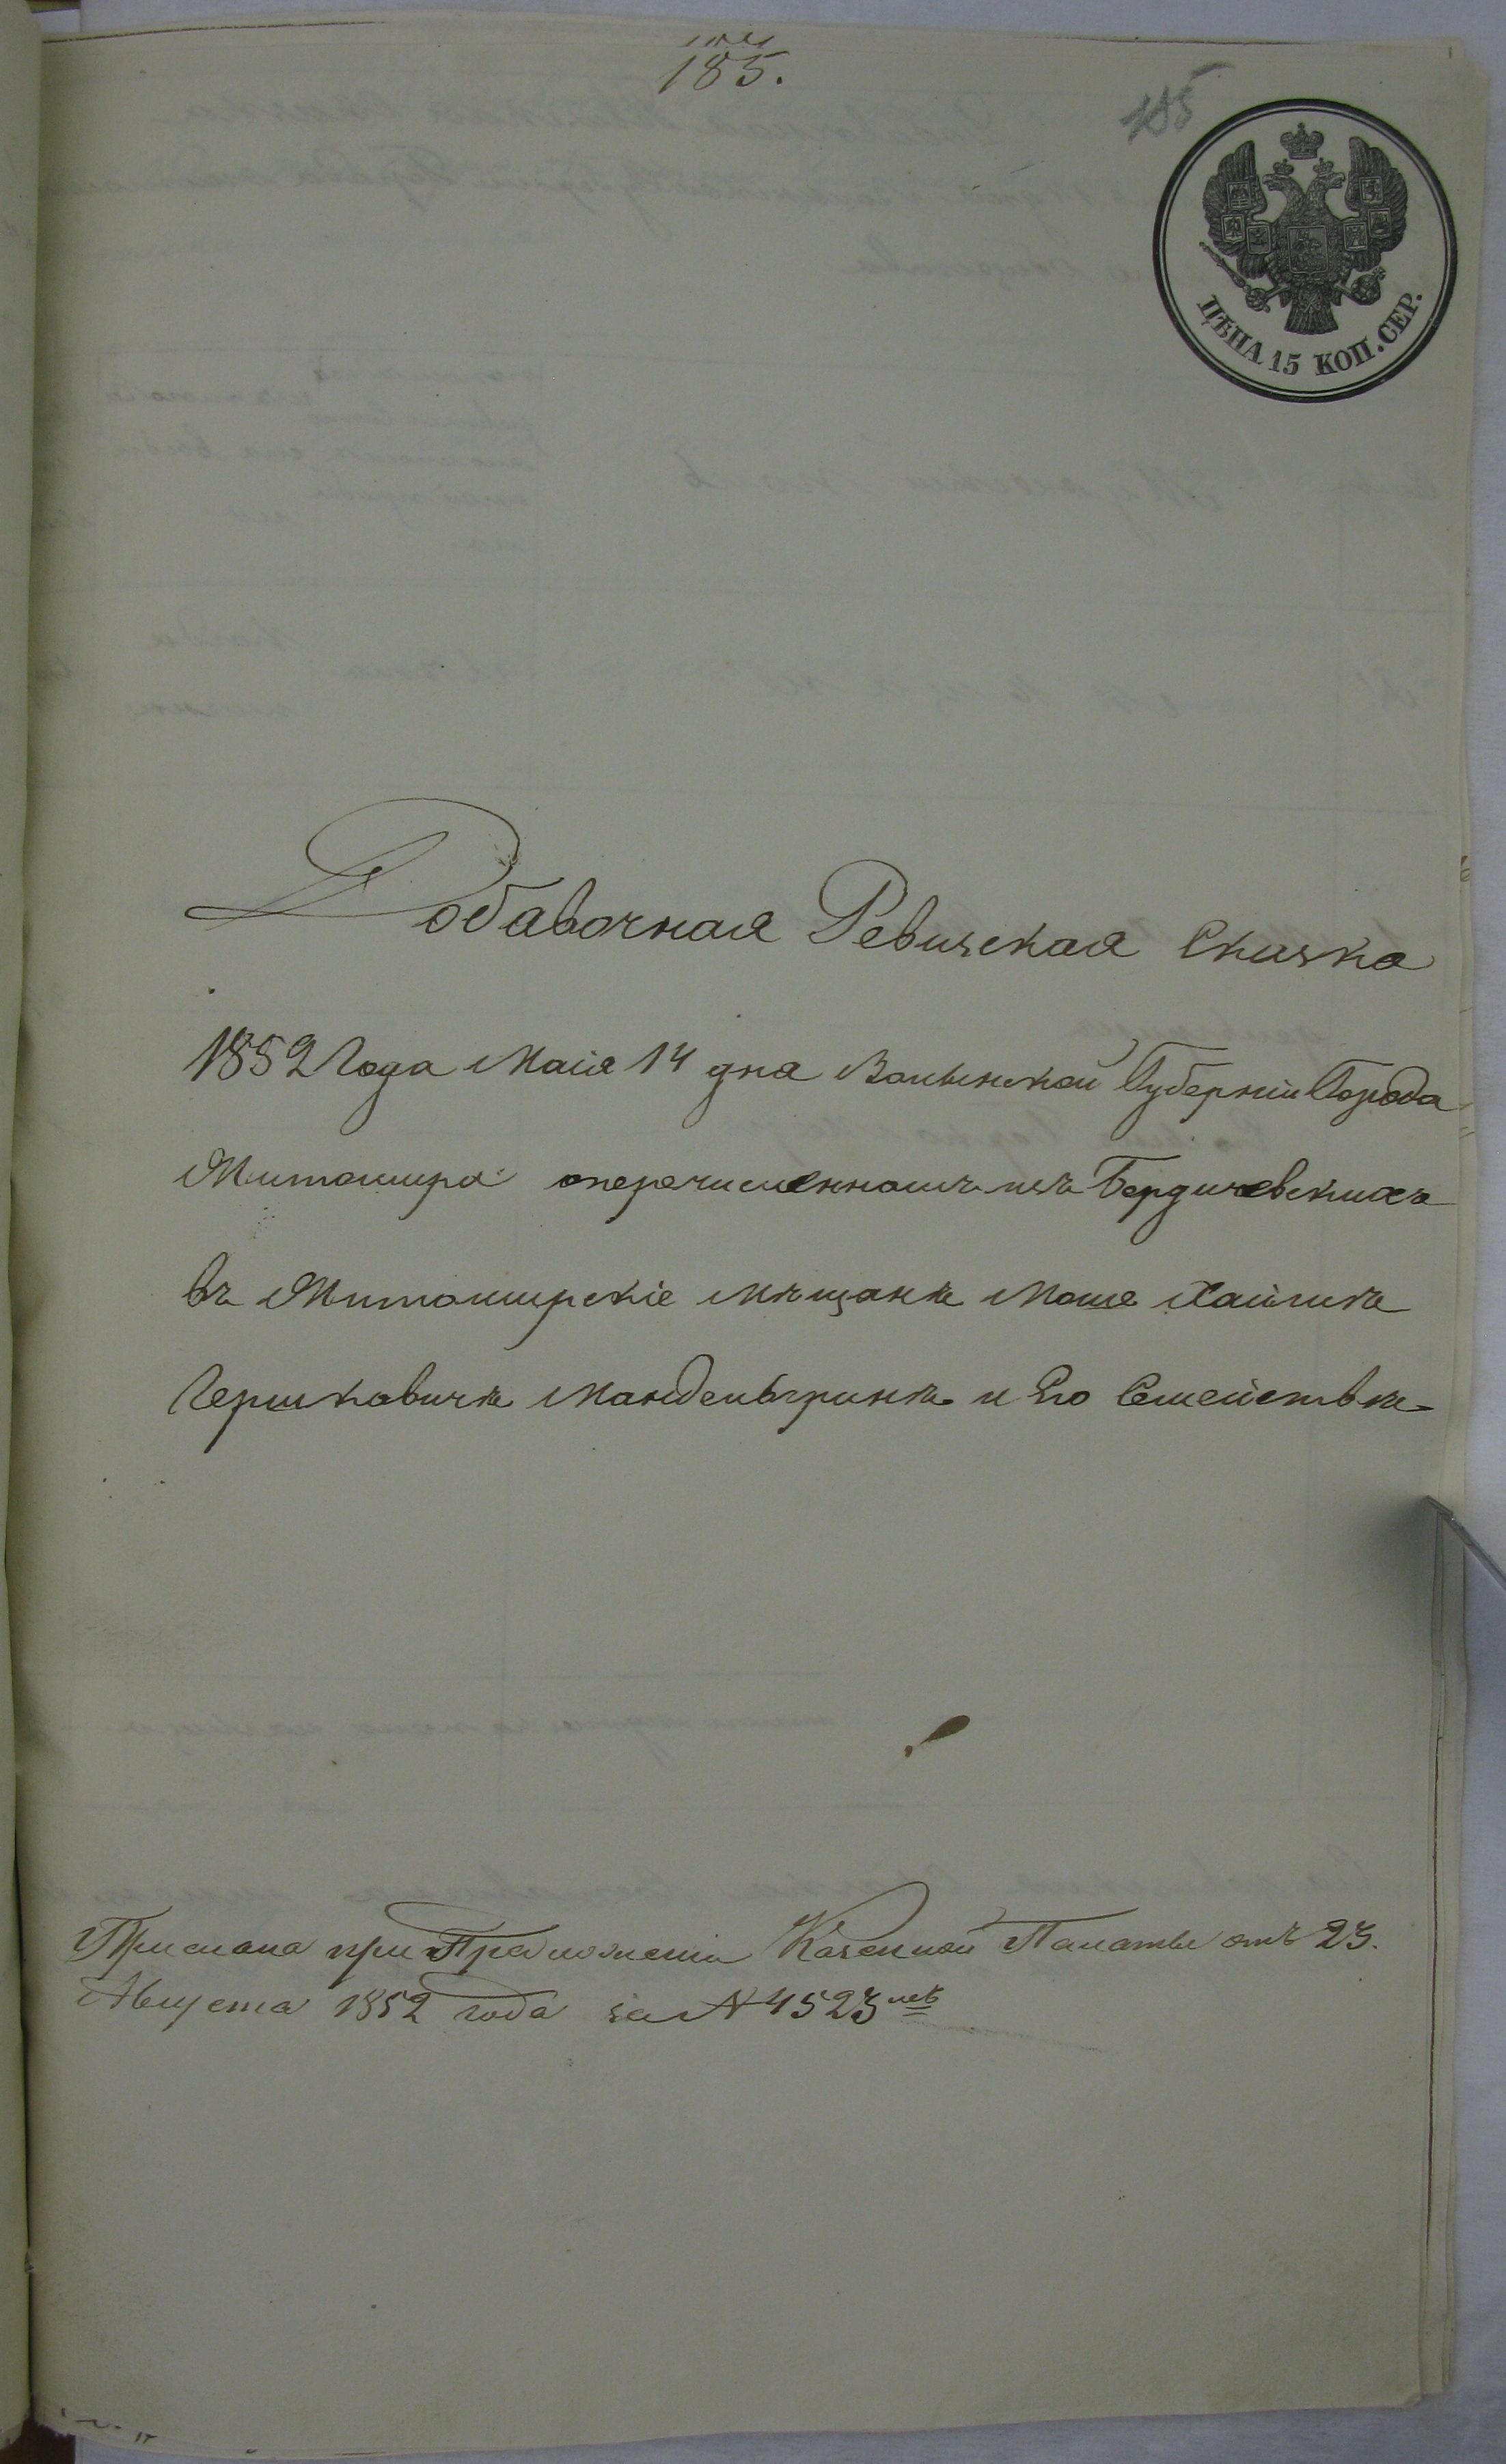 185.
185
ЦѢНА 15 КОП. СЕР.
Добавочная Ревизская Сказка
1852 Года Маія 14 дня Волынской Губерніи Города
Житомира о перечисленномъ изъ Бердичевскихъ
въ Житомирскіе мѣщанѣ Моше Хаимѣ
Гершковичѣ Мандельгринѣ и Его Семействѣ
Прислана при Предложеніи Казенной Палаты отъ 23.
Августа 1852 года за № 4523